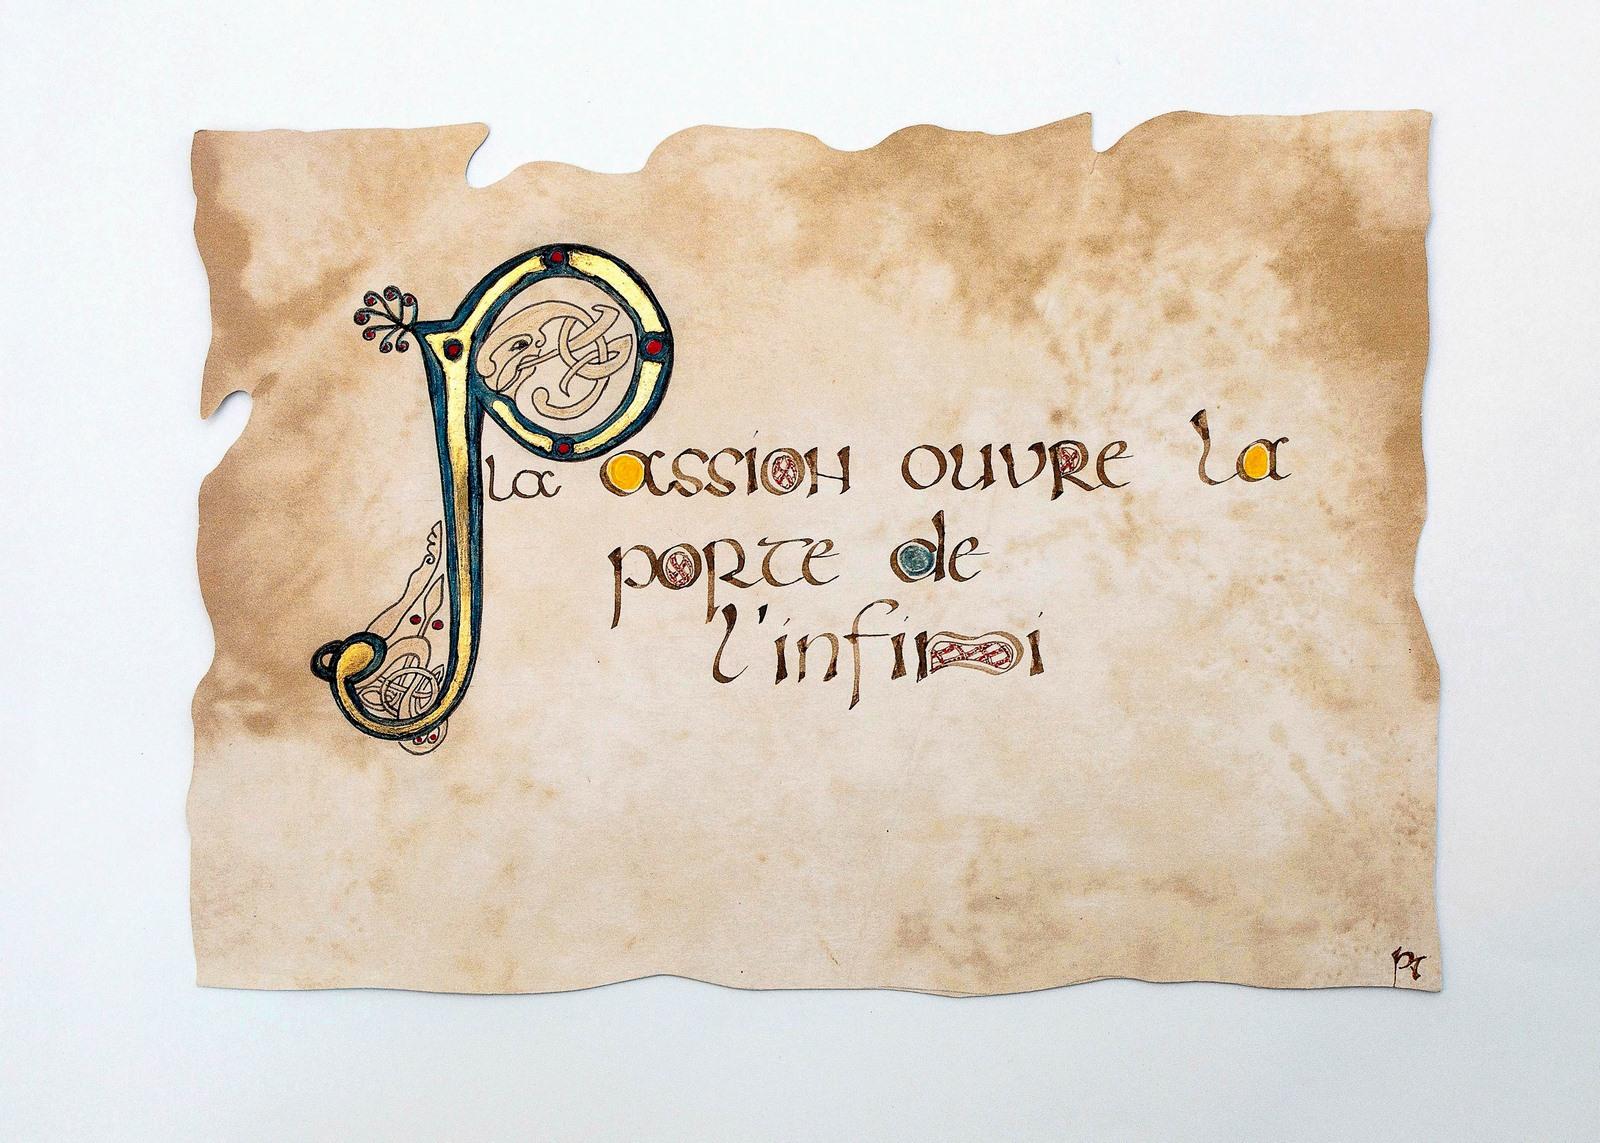 la Passion ouvre la
porte de
l'infini
PT